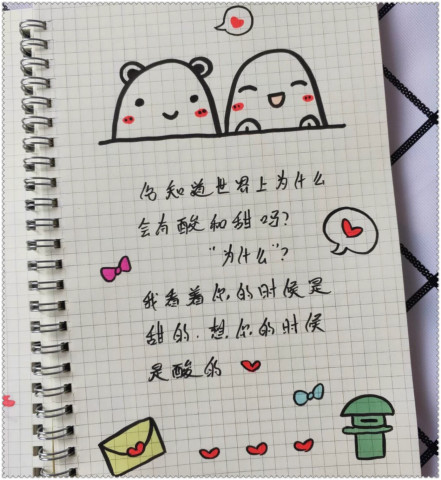 你知道世界上为什么
会有酸和甜吗?
"为什么"?
我看着你的时候是
甜的.想你的时候
是酸的